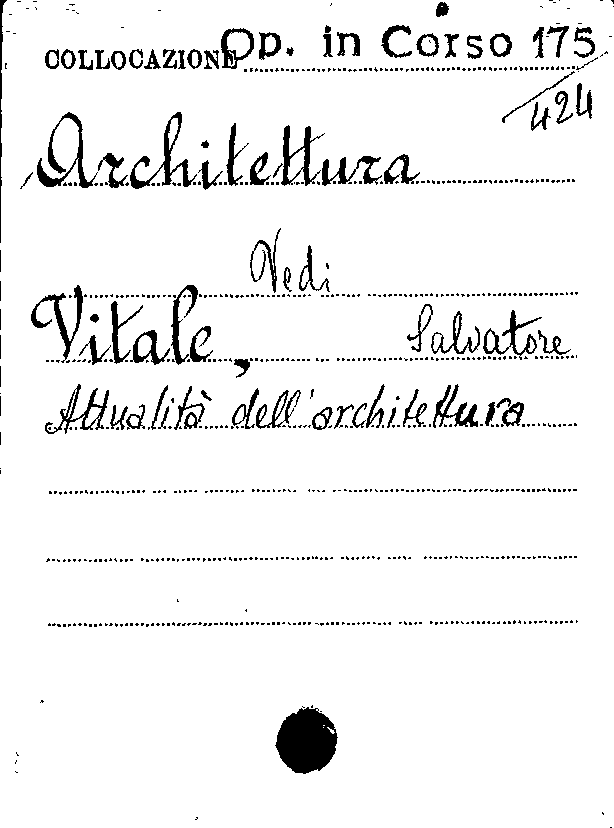 COLLOCAZIONE Op. in Corso 175
/424
Architettura
Vedi
Vitale, Salvatore
Attualità dell'architettura